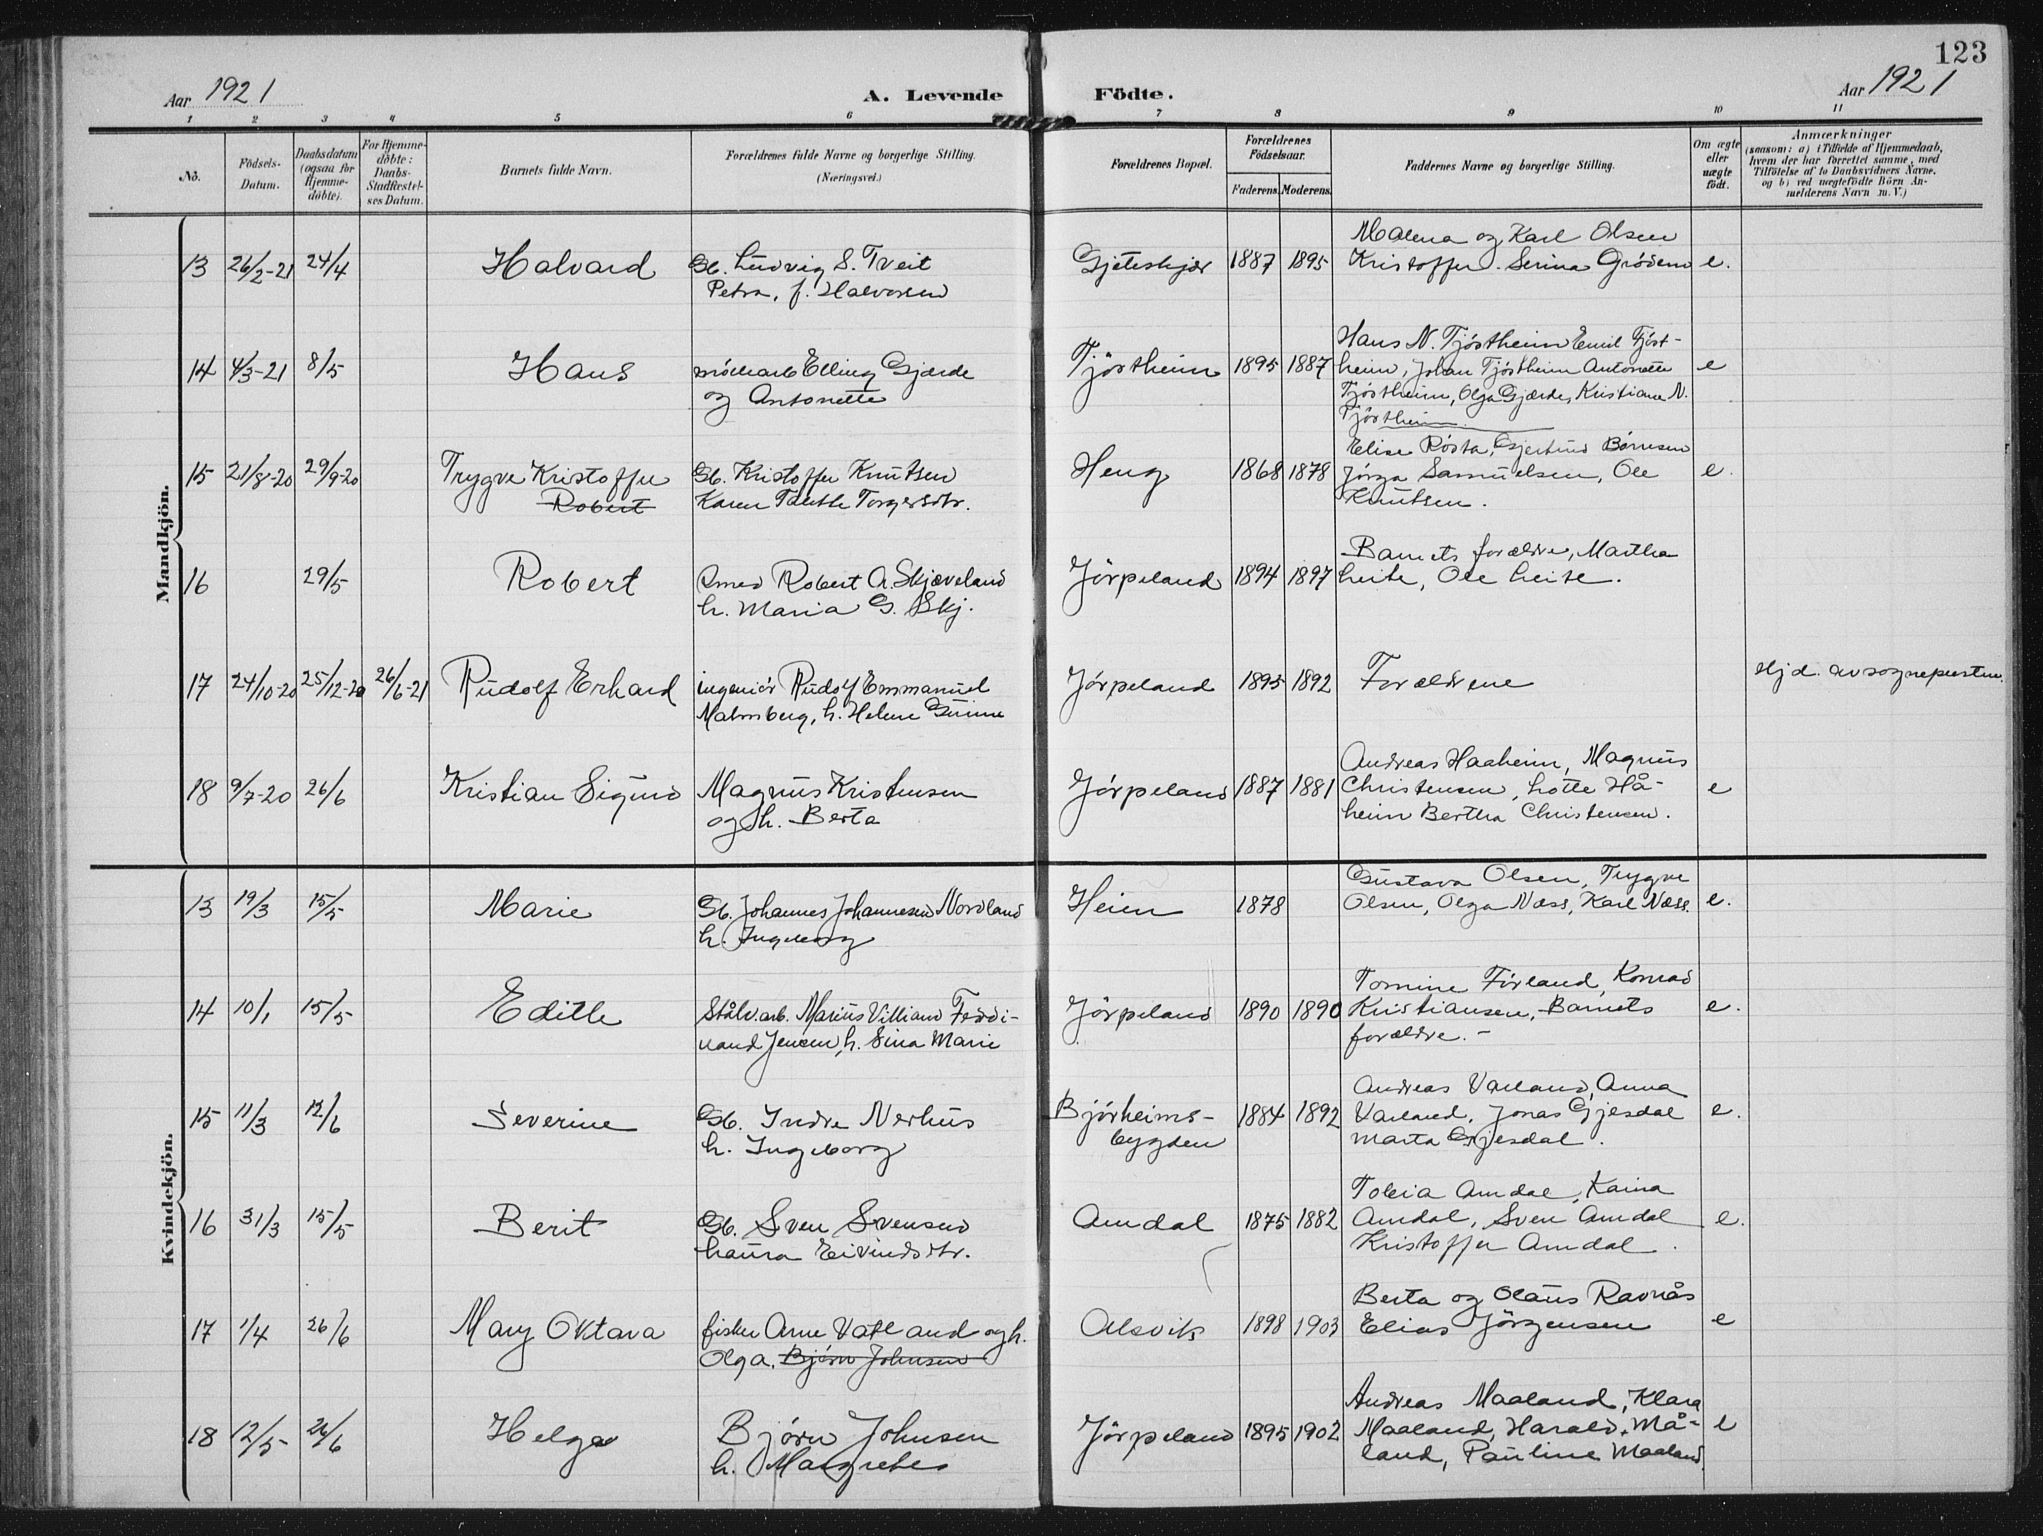 123
Aar 1921
A. Levende Födte.
Aar 1921
1 2 3 4 5 6 7 8 9 10 11
No.
Födsels-
Datum.
Daabsdatum
(ogsaa for
Hjemme-
döbte).
For Hjemme-
döbte:
Daabs-
Stadfæstel-
ses Datum.
Barnets fulde Navn.
Forældrenes fulde Navne og borgerlige Stilling.
(Næringsvei.)
Forældrenes Bopæl.
Forældrenes
Födselsaar.
Faderens. Moderens.
Faddernes Navne og borgerlige Stilling.
Om ægte
eller
uægte
födt.
Anmærkninger
(saasom: a) i Tilfælde af Hjemmedaab,
hvem der har forrettet samme, med
Tilföielse af to Daabsvidners Navne,
og b) ved uægtefödte Börn An-
melderens Navn m. V.)
Mandkjön.
13 26/2-21 24/4 Halvard
Gb. Ludvig S. Tveit
Petra, f. Halvorsen
1887 1895
Malena og Karl Olsen
Kristoffer. Serina Grödem
e.
14 4/3-21 8/5 Hans
Elling Gjærde
og Antonette
Tjöstheim 1895 1887
Hans N. Tjöstheim Emil Tjöst-
heim, Johan Tjöstheim Antonette
Tjöstheim, Olga Gjærde, Kristiane N.
Tjöstheim.
e
15 21/8-20 29/9-20 Trygve Kristoffer
Robert
Gb. Kristoffer Knutsen
Karen Torgersdtr.
Heng 1868 1878
Elise Rösta, Gjertrud Börresen
Samuelsen, Ole
Knutsen.
e.
16 29/5 Robert
Smed Robert A. Skjæveland
h. Maria G. Skj.
Jörpeland 1894 1897
Barnets forældre, Martha
Leite, Ole Leite.
17 24/10-20 25/12-20 26/6-21 Rudolf Erhard
ingeniör Rudolf Emmanuel
Malmsberg, h. Helene
Jörpeland 1895 1892
Forældrene
Hj d. av sognepresten.
18 9/7-20 26/6 Kristian Sigurd
Magnus Kristensen
og h. Berta
Jörpeland 1887 1881
Andreas Haaheim, Magnus
Christensen, Lotte Hå-
heim Bertha Christensen.
e
Kvindekjön.
13 19/3 15/5 Marie
Gb. Johannes Johannesen Nordland
h. Ingeborg
Heien 1878
Gustava Olsen, Trygve
Olsen, Olga Næss, Karl Næss.
e.
14 10/1 15/5 Edith
Stålv.arb. Marius Villiam Ferdi-
nand Jensen, h. Sina Marie
Jörpeland 1890 1890
Tomine Förland, Konrad
Kristiansen, - Barnets
forældre. -
e.
15 11/3 12/6 Severine
Gb. Indre Nerhus
h. Ingeborg
Björheims-
bygden
1884 1892
Andreas Varland, Anna
Varland, Jonas Gjesdal
Marta Gjesdal.
e.
16 31/3 15/5 Berit
Gb. Sven Svensen
Laura Eivindsdtr.
Amdal 1875 1882
Tobia Amdal, Kaina
Amdal, Sven Amdal
Kristoffer Amdal.
e.
17 1/4 26/6 Mary Oktava
fisker Arne Vatland og h.
Olga. Björn Johnsen
Alsvik 1898 1903
Berta og Olaus Ravnås
Elias Jörgensen
e
18 12/5 26/6 Helga
Bjørn Johnsen
h. Margrethe
Jörpeland 1895 1902
Andreas Maaland, Klara
Maaland, Harald Må-
land, Pauline Maaland.
e